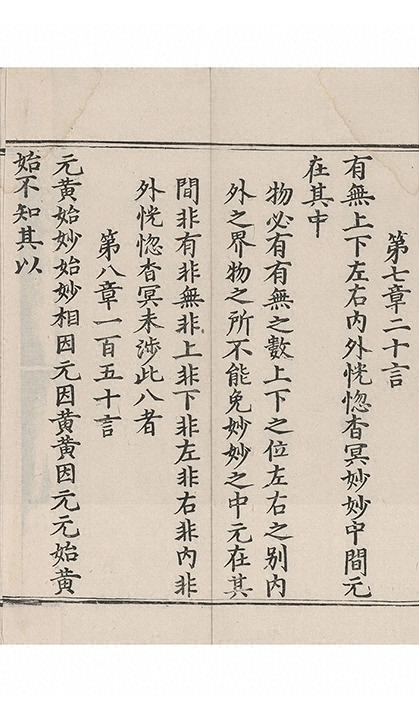 第七章二十言
有無上下左右內外恍惚杳冥妙妙中間元
在其中
物必有有無之數上下之位左右之别內
外之界物之所不能免妙妙之中元在其
間非有非無非上非下非左非右非內非
外恍惚杳冥未涉此八者
第八章一百五十言
元黄始妙始妙相因元因黄黄因元元始黄
始不知其以